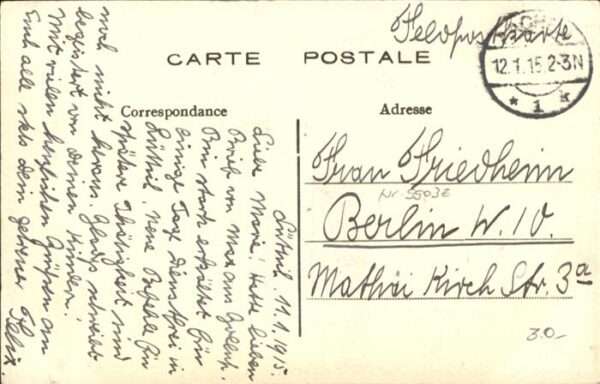 Feldpostkarte
CARTE POSTALE
12.1.15.2-3N
* 1 k
Correspondance
Adresse
Frau Friedheim
Nr. 5503z
Berlin W. 10.
Mathäi Kirch Str. 3a
3.0-
Lüttich, 11.1.1915.
Liebe Marie! Hatte lieben
Brief von Max aus
Bin stark erkältet bin
einige Tage dienstfrei in
Lüttich. Neue Befehle für
spätere Thätigkeit sind
noch nicht heraus. Gladys schreibt
begeistert von Deinen Kindern.
Mit vielen herzlichen Grüßen an
Euch alle stets Dein getreuer Felix.